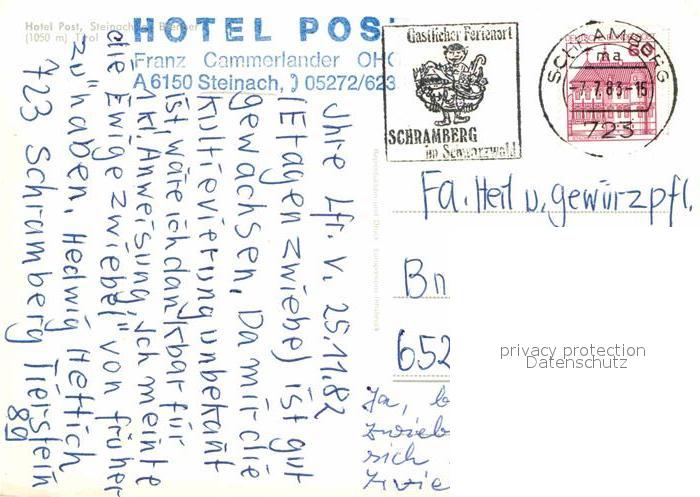 Hotel Post, Steinach
(1050 m) Tirol
HOTEL POS
Franz Cammerlander OHG
A 6150 Steinach, 05272/623
Gastlicher Ferienort
SCHRAMBERG
im Schwarzwald
SCHRAMBERG
ma
-7.7.83-15
723
DEUTSCHE BUNDESPOST
Ihre Lfr. v. 25.11.82
(Etagenzwiebel ist gut
gewachsen. Da mir die
Kultievierung unbekannt
ist wäre ich dankbar für
Anweisung, ich meinte
die Ewige zwiebel" von früher
zu haben, Hedwig Hettich
723 Schramberg Tierstein
89
Fa. Heil u. gewürzpfl.
Bn
652
privacy protection
Datenschutz
Ja, b
zwieb
sich
zwie